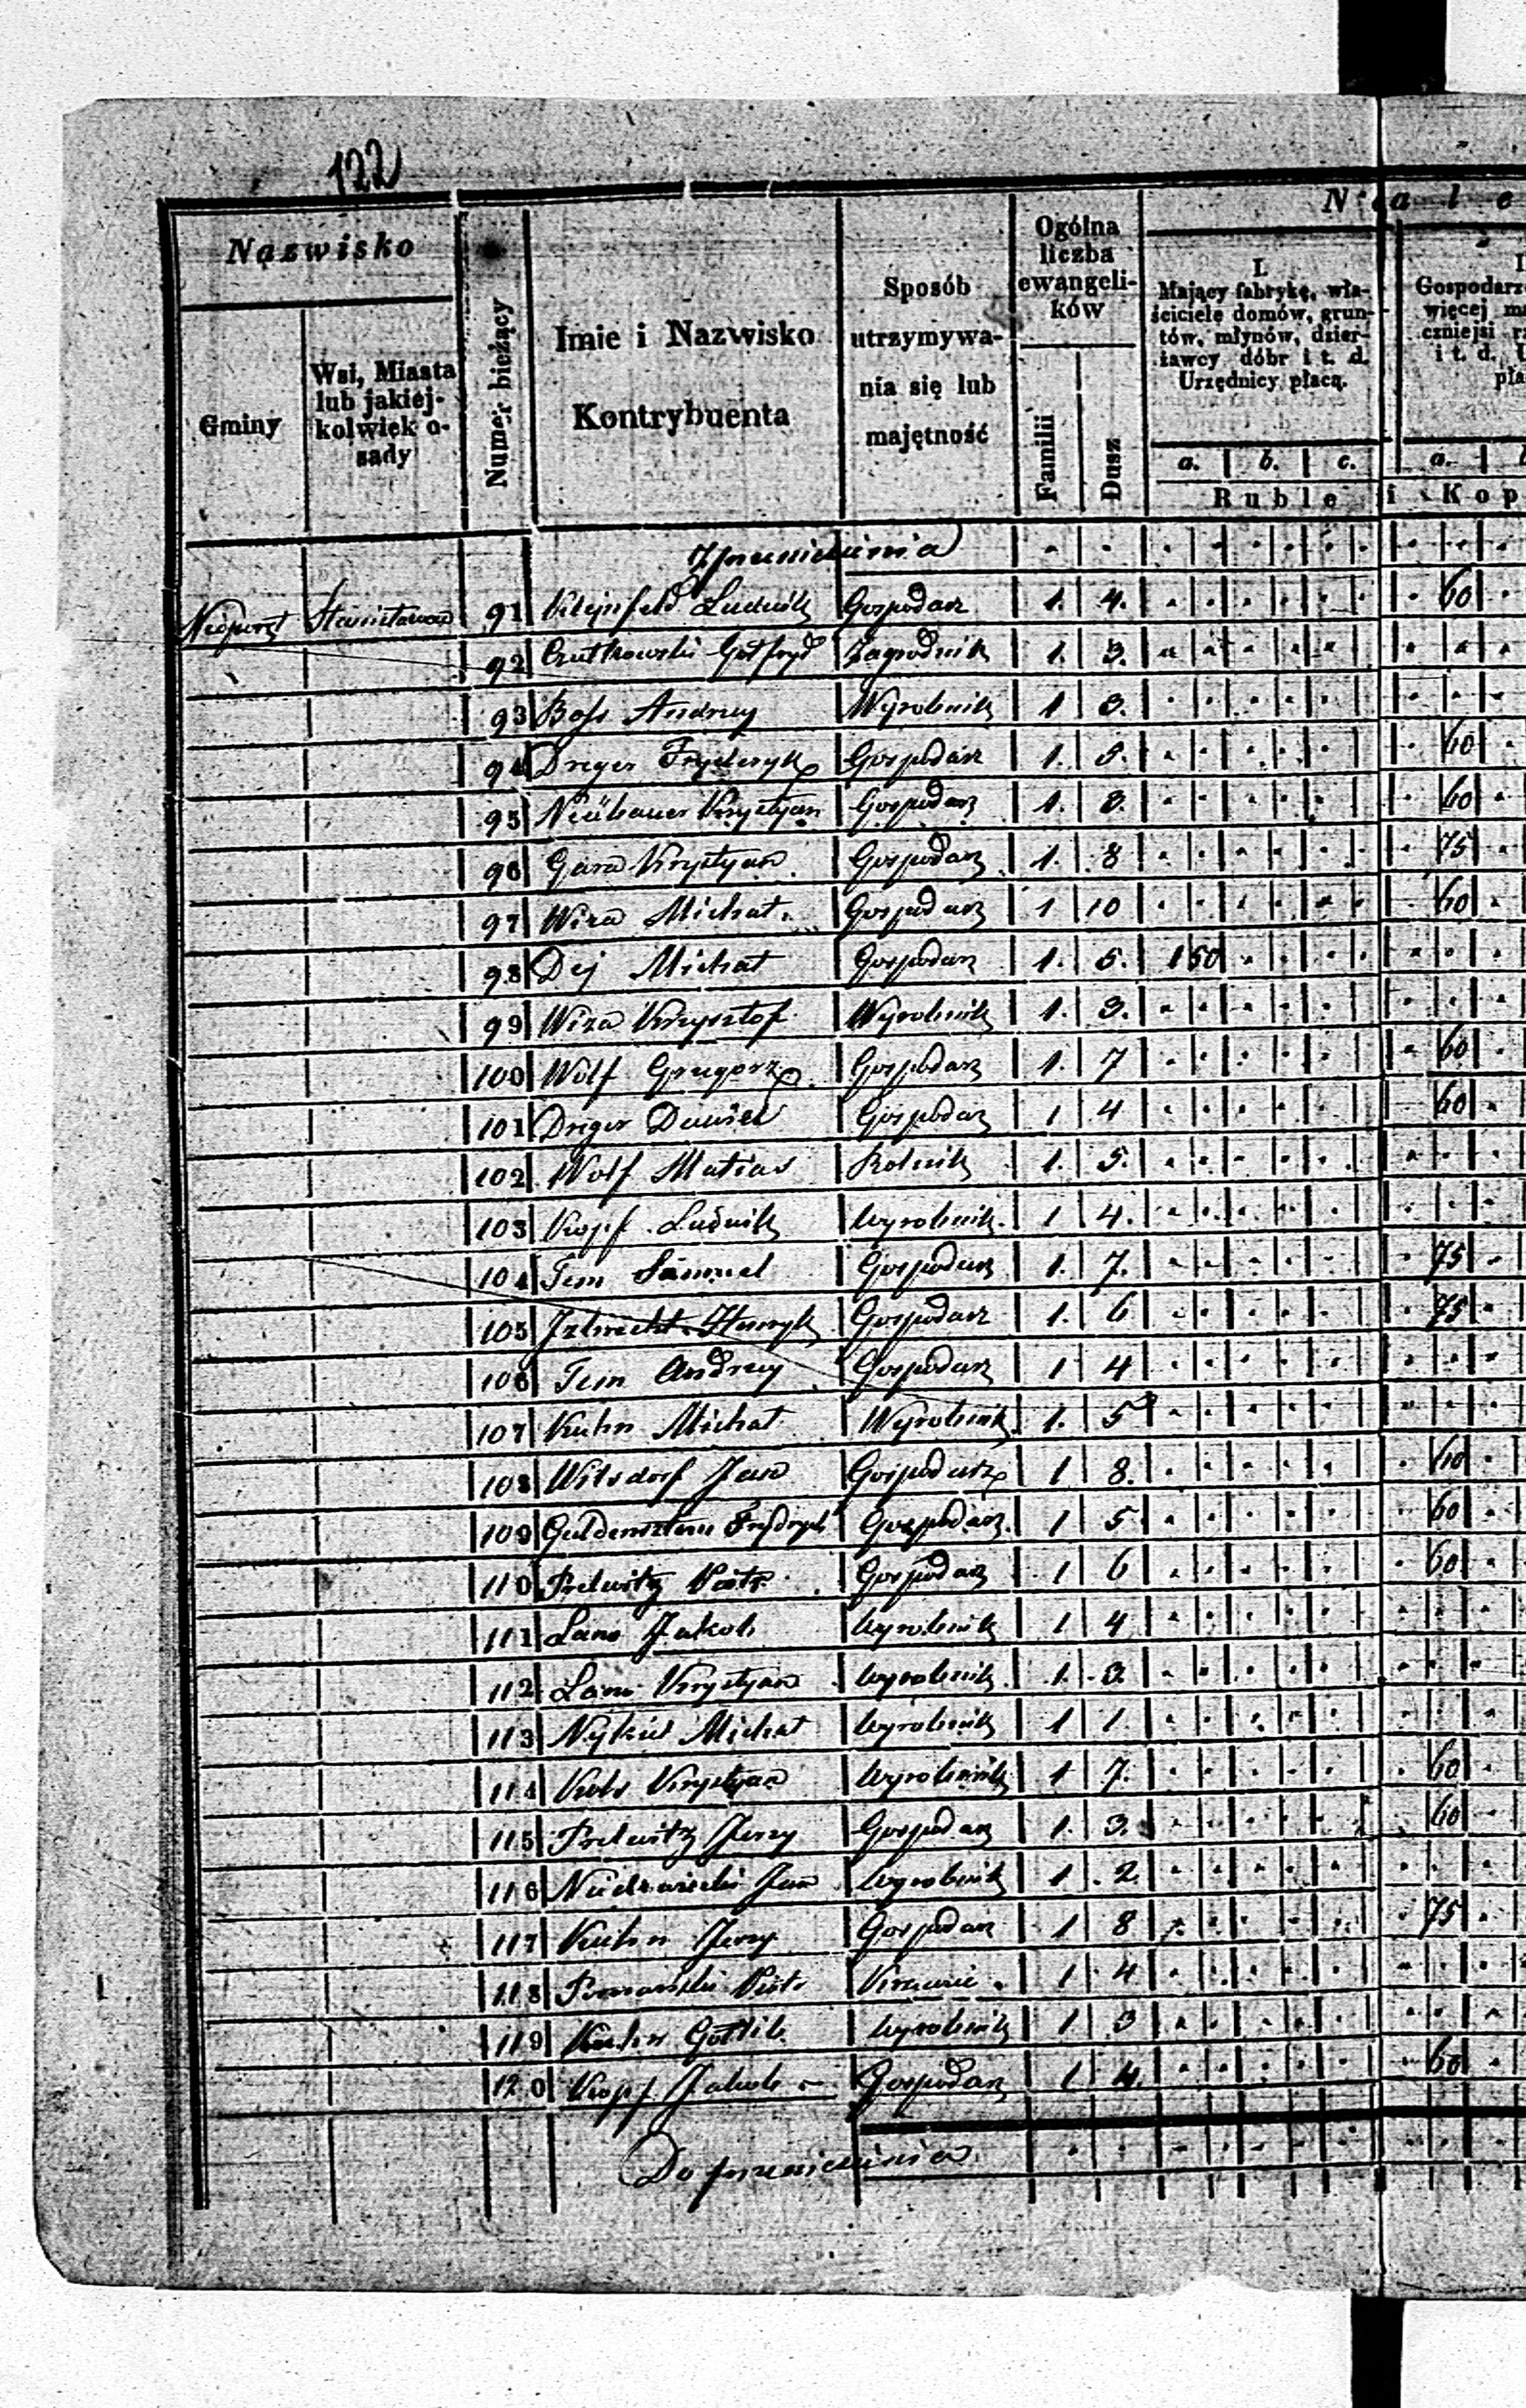 122
Nazwisko
Gminy
Wsi, Miasta lub jakiej-kolwiek o-sady
Numer bieżący
Imie i Nazwisko Kontrybuenta
Sposób utrzymywa-nia się lub majętność
Ogólna liczba ewangeli-ków
Familii
Dusz
N a l e
I. Mający fabrykę, wła-ściciele domów, grun-tów, młynów, dzier-żawcy dóbr i t. d. Urzędnicy płacą.
a. b. c.
Gospodarz więcej czniejsi i t. d.
a.
Ruble i Kop
Z przeniesienia
Nieporęt Stanisławow 91 Klejnfeld Ludwik Gospodarz 1. 4. 60
92 Gotfryd Zagrodnik 1. 3.
93 Boss Andrzej Wyrobnik 1 3.
94 Dreger Fryderyk Gospodarz 1. 5. 60
95 Neübauer Krystyan Gospodarz 1. 3. 60
96 Gara Krystyan Gospodarz 1. 8 75
97 Wiza Michał Gospodarz 1 10 60
98 Dej Michał Gospodarz 1. 5. 1 50
99 Wiza Krzysztof Wyrobnik 1. 3.
100 Wolf Grzegorz Gospodarz 1. 7 60
101 Dreger Daniel Gospodarz 1 4 60
102 Wolf Matias Rolnik 1. 5.
103 Kopf Ludwik Wyrobnik 1 4.
104 Tem Samuel Gospodarz 1. 7. 75
105 Henryk Gospodarz 1. 6 75
106 Tem Andrzej Gospodarz 1 4
107 Kuhn Michał Wyrobnik 1. 5
108 Wilsdorf Jan Gospodarz 1 8. 60
109 Guldensztern Frydrych Gospodarz 1 5 60
110 Prelwitz Piotr Gospodarz 1 6 60
111 Lans Jakob Wyrobnik 1 4
112 Lans Krystyan Wyrobnik 1. 3.
113 Michał Wyrobnik 1 1.
114 Krystyan Wyrobnik 1 7. 60
115 Prelwitz Jerzy Gospodarz 1. 3. 60
116 Jan Wyrobnik 1 2
117 Kuhn Jerzy Gospodarz 1 8 75
118 Piotr 1 4
119 Kuhn Gottlib Wyrobnik 1 3
120 Kopf Jakob Gospodarz 1 4. 60
Do przeniesienia